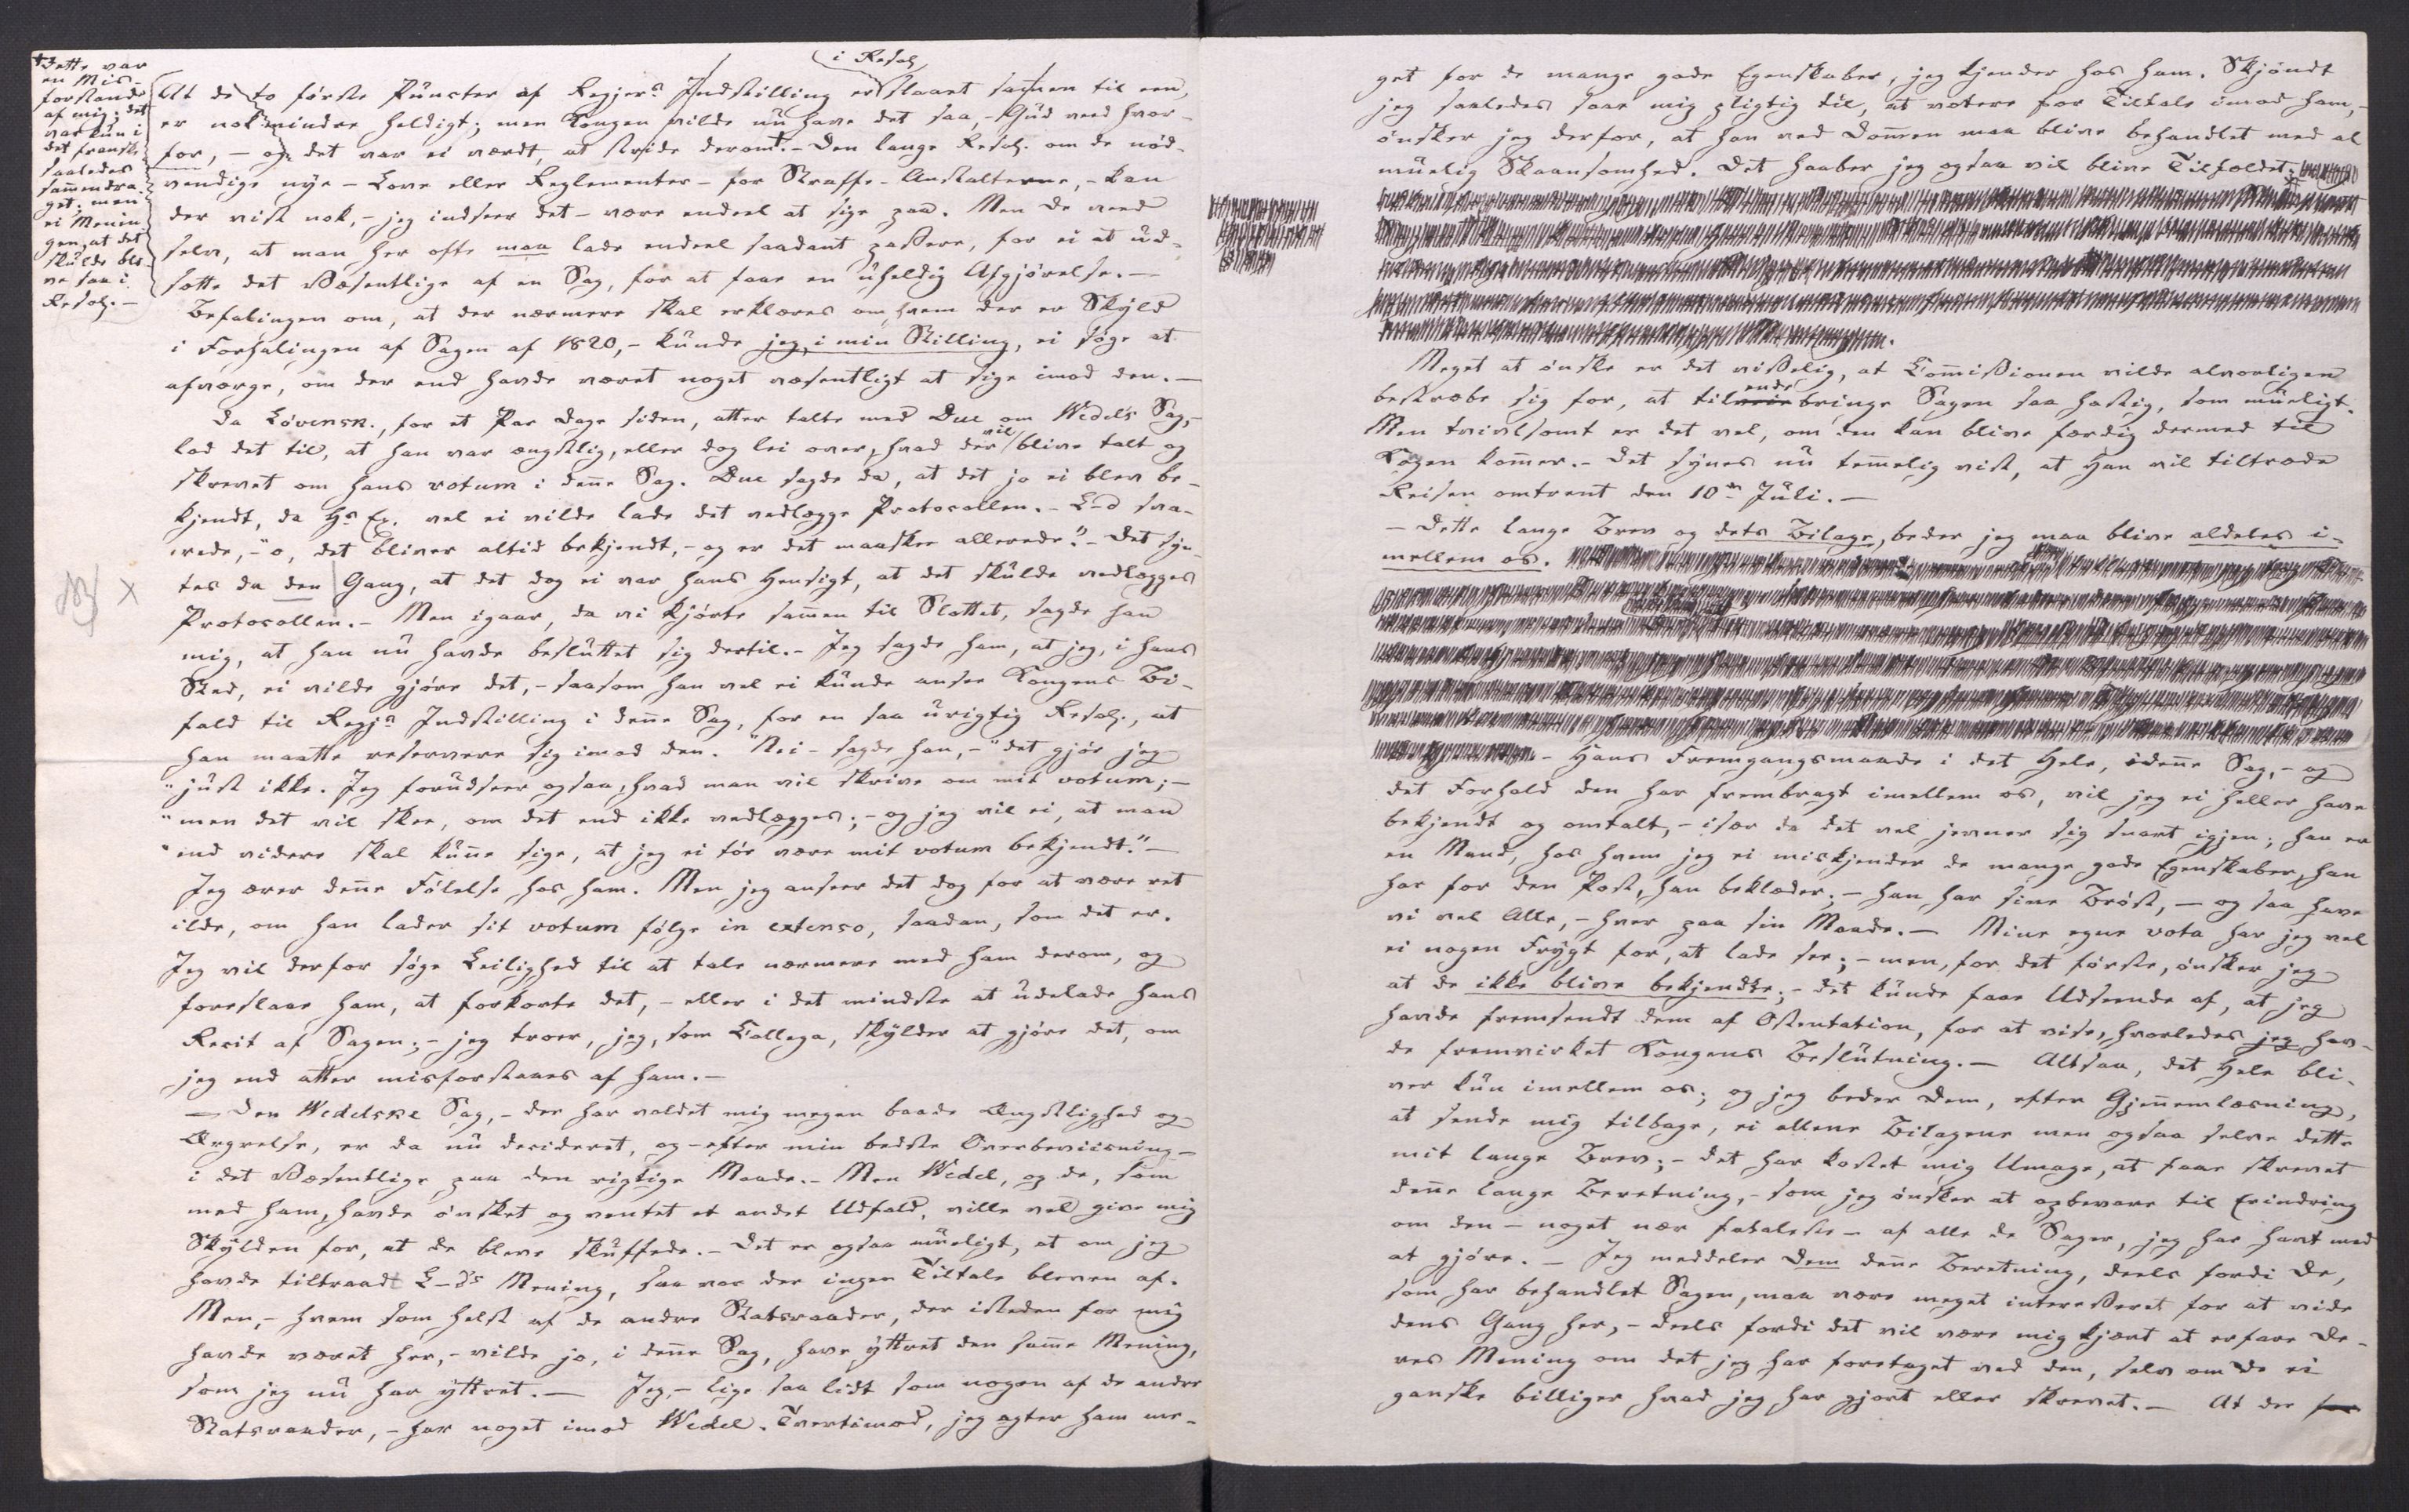 + Dette var
en Mis-
forstand
af mig; det
var kun i
det franske
saaledes
sammendra-
get; men
ei Menin-
gen, at det
skulde bli-
ve saa i
Resol. –
i Resol
At de to første Puncter af Regjers Indstilling er slaaet sammen til een,
er nok mindre heldigt; men Kongen vilde nu have det saa, – Gud veed hvor-
for, – og det var ei værdt, at stride derom +. – Den lange Resol. om de nød-
vendige nye – Love eller Reglementer – for Straffe-Anstalterne, – kan
der vist nok, – jeg indseer det – være endeel at sige paa. Men De veed
selv, at man her ofte maa lade endeel saadant passere, for ei at ud-
sætte det Væsentlige af en Sag, for at faae en uheldig Afgjörelse. –
Befalingen om, at der nærmere skal erklæres om, hvem der er Skyld
i Forhalingen af Sagen af 1820, – kunde jeg, i min Stilling, ei søge at
afværge, om der end havde været noget væsentligt at sige imod den. –
Da Løvensk., for et Par Dage siden, atter talte med Due om Wedels Sag, –
lod det til, at han var ængstlig, eller dog lei over, hvad der vil blive talt og
skrevet om hans votum i denne Sag. Due sagde da, at det jo ei blev be-
kjendt, da Hs Ex. vel ei vilde lade det vedlægge Protocollen. – L–d sva-
rede, – "o, det bliver altid bekjendt, – og er det maaskee allerede." – Det syn-
tes da den Gang, at det dog ei var hans Hensigt, at det skulde vedlægges
Protocollen. – Men igaar, da vi kjörte sammen til Slottet, sagde han
mig, at han nu havde besluttet sig dertil. – Jeg sagde ham, at jeg, i hans
Sted, ei vilde gjöre det, – saasom han vel ei kunde ansee Kongens Bi-
fald til Regjs Indstilling i denne Sag, for en saa urigtig Resol., at
han maatte reservere sig imod den. "Nei – sagde han, – "det gjör jeg
"just ikke. Jeg forudseer ogsaa, hvad man vil skrive om mit votum; –
"men det vil skee, om det end ikke vedlægges; – og jeg vil ei, at man
"end videre skal kunne sige, at jeg ei tör være mit votum bekjendt." –
Jeg ærer denne Følelse hos ham. Men jeg anseer det dog for at være ret
ilde, om han lader sit votum følge in extenso, saadan, som det er.
Jeg vil derfor søge Leilighed til at tale nærmere med ham derom, og
foreslaae ham, at forkorte det, – eller i det mindste at udelade hans
Recit af Sagen; – jeg troer, jeg, som Collega, skylder at gjöre det, om
jeg end atter misforstaaes af ham. –
– Den Wedelske Sag, – der har voldet mig megen baade Ængstlighed og
Ærgrelse, er da nu decideret, og – efter min bedste Overbeviisning –
i det Væsentlige paa den rigtige Maade. – Men Wedel, og de, som
med ham, havde ønsket og ventet et andet Udfald, ville vel give mig
Skylden for, at de bleve skuffede. – Det er ogsaa mueligt, at om jeg
havde tiltraadt L–ds Mening, saa var der ingen Tiltale bleven af.
Men, – hvem som helst af de andre Statsraader, der isteden for mig
havde været her, – vilde jo, i denne Sag, have yttret den samme Mening,
som jeg nu har yttret. – Jeg, – lige saa lidt som nogen af de andre
Statsraader, – har noget imod Wedel. Tvertimod, jeg agter ham me-
get for de mange gode Egenskaber, jeg kjender hos ham. Skjöndt
jeg saaledes saae mig pligtig til, at votere for Tiltale imod ham, –
ønsker jeg derfor, at han ved Dommen maa blive behandlet med al
muelig Skaansomhed. Det haaber jeg ogsaa vil blive Tilfældet.
Meget at ønske er det visselig, at Commissionen vilde alvorligen
bestræbe sig for, at tilendebringe Sagen saa hastig, som mueligt.
Men tvivlsomt er det vel, om den kan blive færdig dermed til
Kongen kommer. – Det synes nu temmelig vist, at Han vil tiltræde
Reisen omtrent den 10de Juli. –
– Dette lange Brev og dets Bilage, beder jeg maa blive aldeles i-
mellem os.
– Hans Fremgangsmaade i det Hele, i denne Sag, – og
det Forhold den har frembragt imellem os, vil jeg ei heller have
bekjendt og omtalt, – især da det vel jevner sig snart igjen; han er
en Mand, hos hvem jeg ei miskjender de mange gode Egenskaber, han
har for den Post, han beklæder; – han har sine Bröst, – og saa have
vi vel Alle, – hver paa sin Maade. – Mine egne vota har jeg vel
ei nogen Frygt for, at lade see; – men, for det første, ønsker jeg
at de ikke blive bekjendte; – det kunde faae Udseende af, at jeg
havde fremsendt dem af Ostentation, for at vise, hvorledes jeg hav-
de fremvirket Kongens Beslutning. – Altsaa, det Hele bli-
ver kun imellem os; og jeg beder Dem, efter Gjennemlæsning,
at sende mig tilbage, ei allene Bilagene men ogsaa selve dette
mit lange Brev; – det har kostet mig Umage, at faae skrevet
denne lange Beretning, – som jeg ønsker at opbevare til Erindring
om den – noget nær fataleste – af alle de Sager, jeg har havt med
at gjöre. – Jeg meddeler Dem denne Beretning, deels fordi De,
som har behandlet Sagen, maa være meget interesseret for at vide
dens Gang her, – deels fordi det vil være mig kjært at erfare De-
res Mening om det jeg har foretaget ved den, selv om De ei
ganske billiger hvad jeg har gjort eller skrevet. – At der